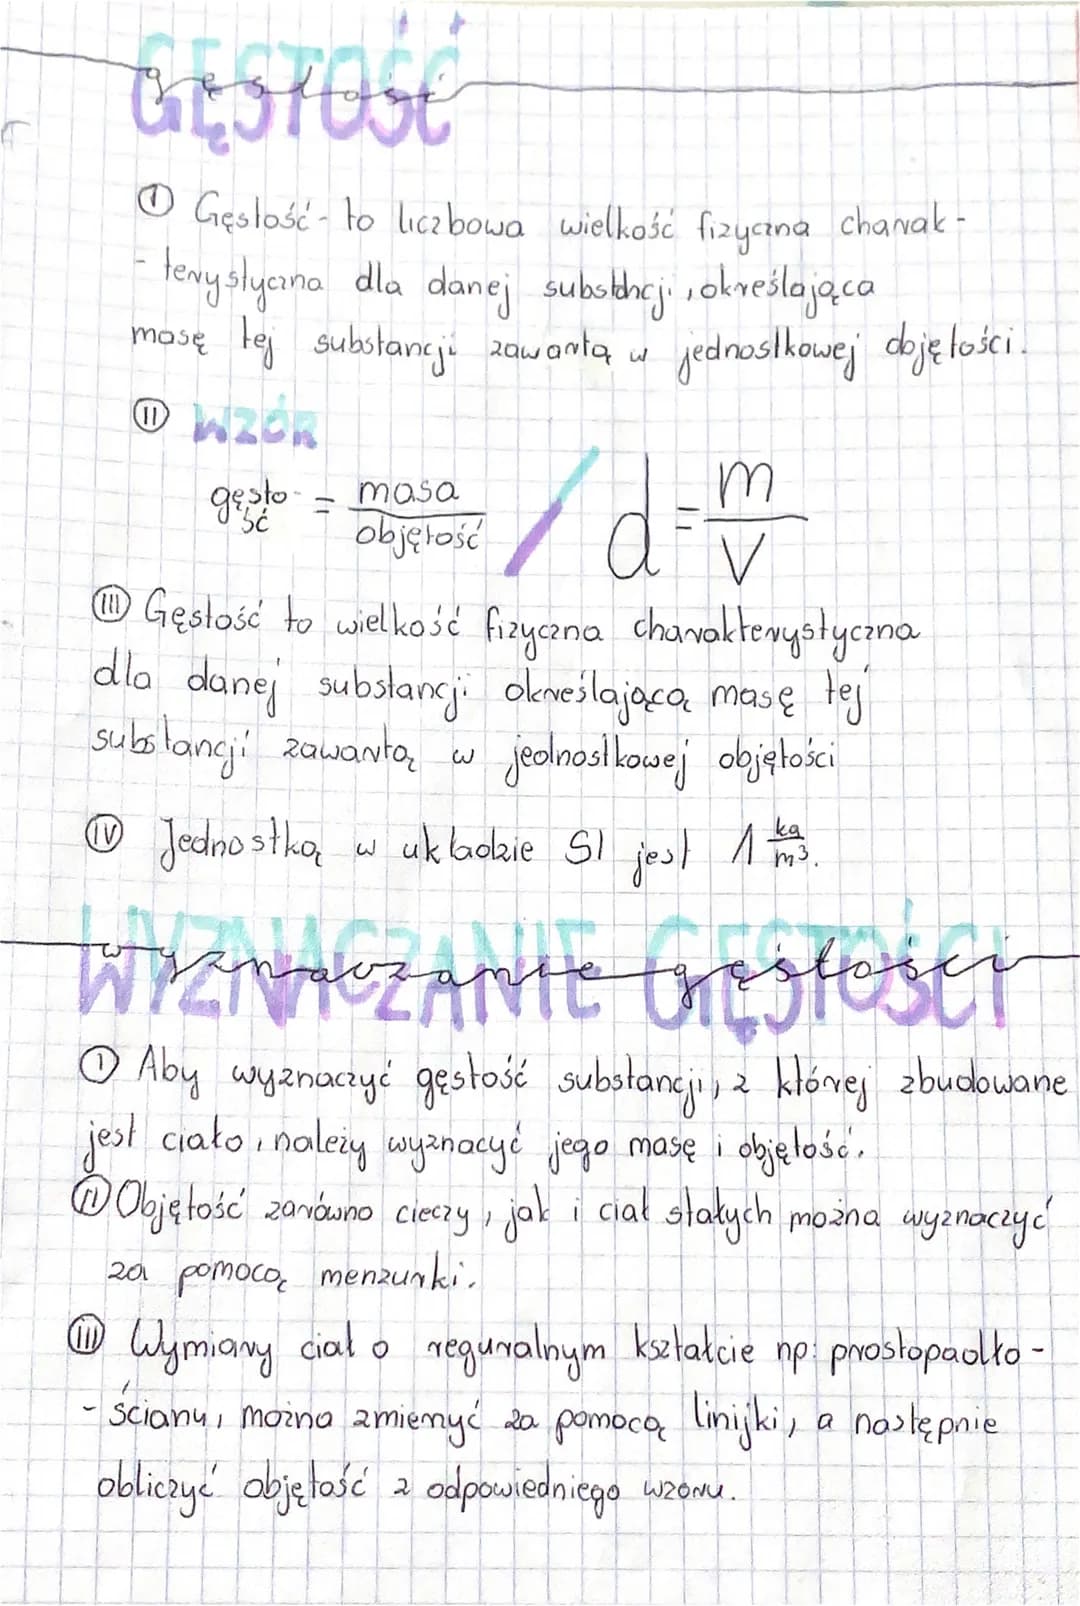 GĘSTOŚĆ
gęstość
I Gęstość - to liczbowa wielkość fizyczna charak-
- terystyczna dla danej substancji, określająca
masę tej substancji zawartą w jednostkowej objętości.
II WZÓR
gęsto-ść = masa / objętość / d = m / V
III Gęstość to wielkość fizyczna charakterystyczna
dla danej substancji określającą masę tej
substancji zawartą w jednostkowej objętości
IV Jednostką w układzie SI jest 1 kg/m³.
WYZNACZANIE GĘSTOŚCI
wyznaczanie gęstości
I Aby wyznaczyć gęstość substancji, z której zbudowane
jest ciało, należy wyznacyć jego masę i objętość.
II Objętość zarówno cieczy, jak i ciał stałych można wyznaczyć
za pomocą menzurki.
III Wymiary ciał o reguralnym kształcie np: prostopadło-
- ścianu, można zmierzyć za pomocą linijki, a następnie
obliczyć objętość z odpowiedniego wzoru.